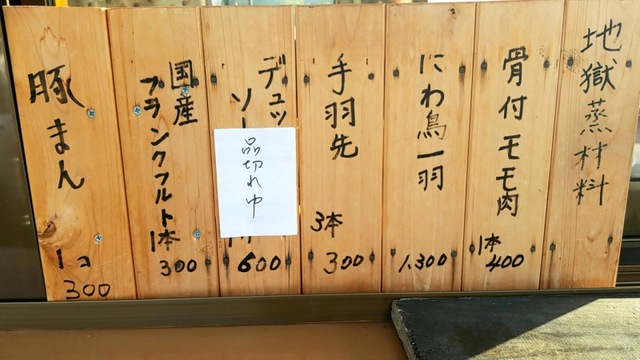 地獄蒸材料
骨付モモ肉
1本
400
にわ鳥一羽
1,300
手羽先
3本
300
デュッ
ソー
品切れ中
600
国産
フランクフルト
1本
300
豚まん
1コ
300